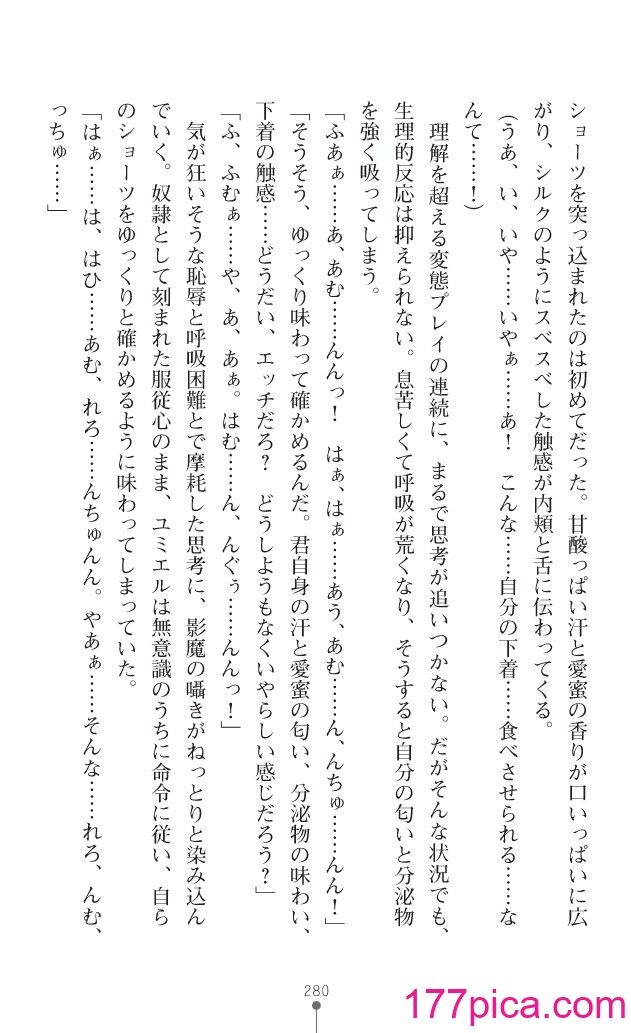 ショーツを突っ込まれたのは初めてだった。甘酸っぱい汗と愛蜜の香りが口いっぱいに広
がり、シルクのようにスベスベした触感が内頬と舌に伝わってくる。
（うあ、い、いや……いやぁ……あ！　こんな……自分の下着……食べさせられる……な
んて……！）
　理解を超える変態プレイの連続に、まるで思考が追いつかない。だがそんな状況でも、
生理的反応は抑えられない。息苦しくて呼吸が荒くなり、そうすると自分の匂いと分泌物
を強く吸ってしまう。
「ふあぁ……あ、あむ……んんっ！　はぁ、はぁ……あう、あむ……ん、んちゅ……んん！」
「そうそう、ゆっくり味わって確かめるんだ。君自身の汗と愛蜜の匂い、分泌物の味わい、
下着の触感……どうだい、エッチだろ？　どうしようもなくいやらしい感じだろう？」
「ふ、ふむぁ……や、あ、あぁ。はむ……ん、んぐぅ……んんっ！」
　気が狂いそうな恥辱と呼吸困難とで摩耗した思考に、影魔の囁きがねっとりと染み込ん
でいく。奴隷として刻まれた服従心のまま、ユミエルは無意識のうちに命令に従い、自ら
のショーツをゆっくりと確かめるように味わってしまっていた。
「はぁ……は、はひ……あむ、れろ……んちゅんん。やあぁ……そんな……れろ、んむ、
っちゅ……」
280
177pica.com